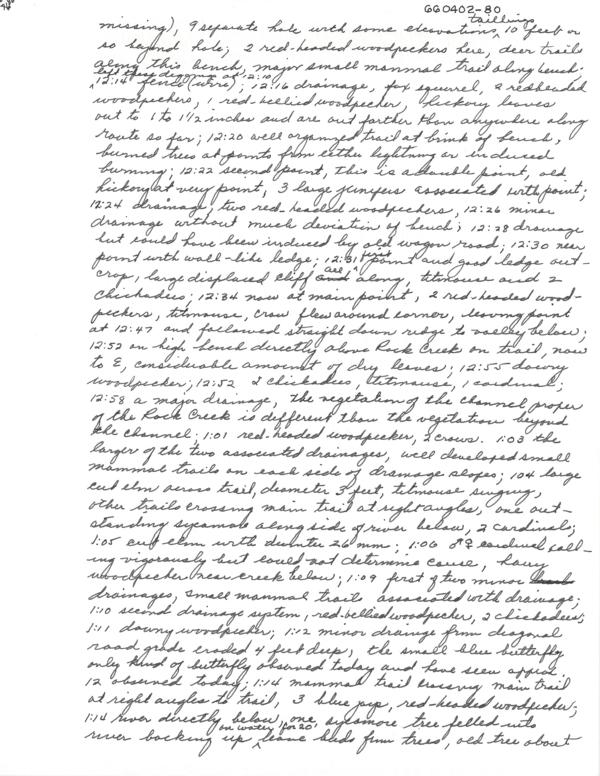 GG0402-80
missing), 9 separate hole with some excavation, taillings 10 feet or
so beyond hole; 2 red-headed woodpeckers here, deer trails
along this bench, major small mammal trail along bench;
left these diggings at 12:10
12:14 fence (wire); 12:16 drainage, fox squirrel, 2 redheaded
woodpeckers, 1 red-bellied woodpecker, hickory leaves
out to 1 to 1½ inches and are out farther than anywhere along
route so far; 12:20 well organized trail at brink of bench,
burned trees at points from either lightning or induced
burning; 12:22 second point, this is a double point, old
hickory at very point, 3 large junipers associated with point;
12:24 drainage, two red-headed woodpeckers, 12:26 minor
drainage without much deviation of bench; 12:28 drainage
but could have been induced by old wagon road; 12:30 near
point with wall-like ledge; 12:31 first point and good ledge out-
crop, large displaced cliff all along, titmouse and 2
chickadees; 12:34 now at main point, 2 red-headed wood-
peckers, titmouse, crow flew around corner, leaving point
at 12:47 and followed straight down ridge to valley below;
12:52 on high bench directly above Rock Creek on trail, now
to E, considerable amount of dry leaves; 12:55 downy
woodpecker; 12:52 2 chickadees, titmouse, 1 cardinal;
12:58 a major drainage, the vegetation of the channel proper
of the Rock Creek is different than the vegetation beyond
the channel; 1:01 red-headed woodpecker, 2 crows. 1:03 the
larger of the two associated drainages, well developed small
mammal trails on each side of drainage slopes; 104 large
cut elm across trail, diameter 3 feet, titmouse singing,
other trails crossing main trail at right angles, one out-
standing sycamore along side of river below, 2 cardinals;
1:05 cut elm with diameter 26 mm; 1:06 ♂♀ cardinal call-
ing vigorously but could not determine cause, hairy
woodpecker near creek below; 1:09 first of two minor
drainages, small mammal trails associated with drainage;
1:10 second drainage system, red-bellied woodpecker, 2 chickadees;
1:11 downy woodpecker; 1:12 minor drainage from diagonal
road grade eroded 4 feet deep, the small blue butterfly
only kind of butterfly observed today and have seen approx.
12 observed today; 1:14 mammal trail crossing main trail
at right angles to trail, 3 blue jay, red-headed woodpecker;
1:14 river directly below, one sycamore tree felled into
river backing up on water for 20' leave buds from trees, old tree about